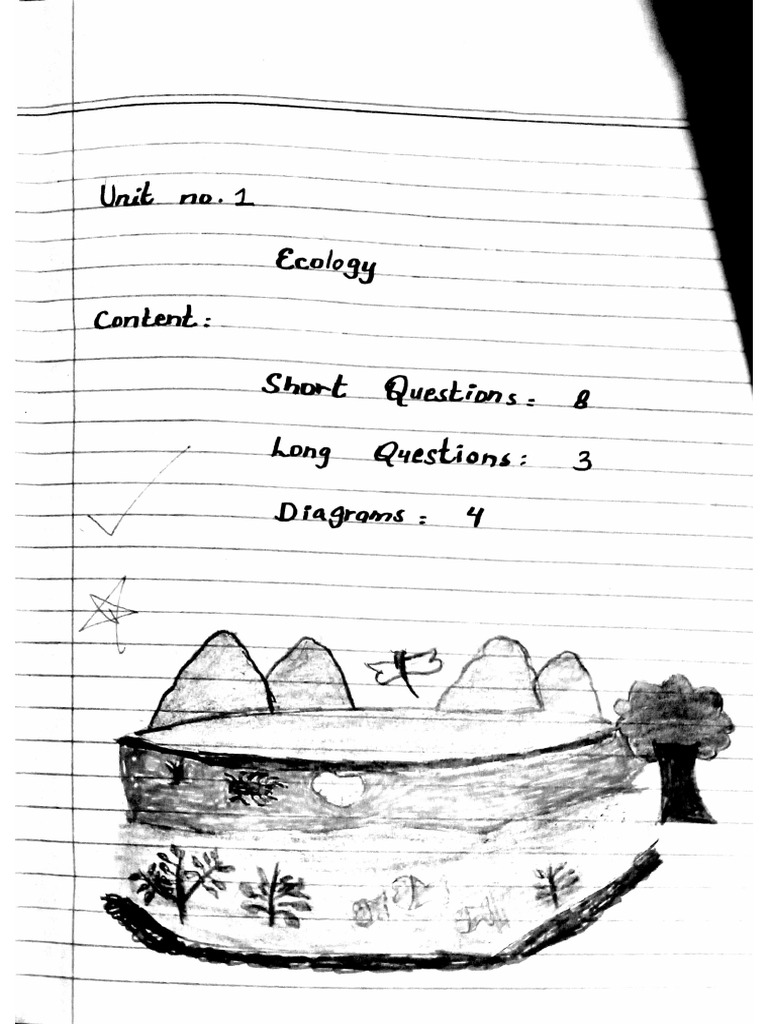 Unit no. 1
Ecology
Content:
Short Questions: 8
Long Questions: 3
Diagrams: 4